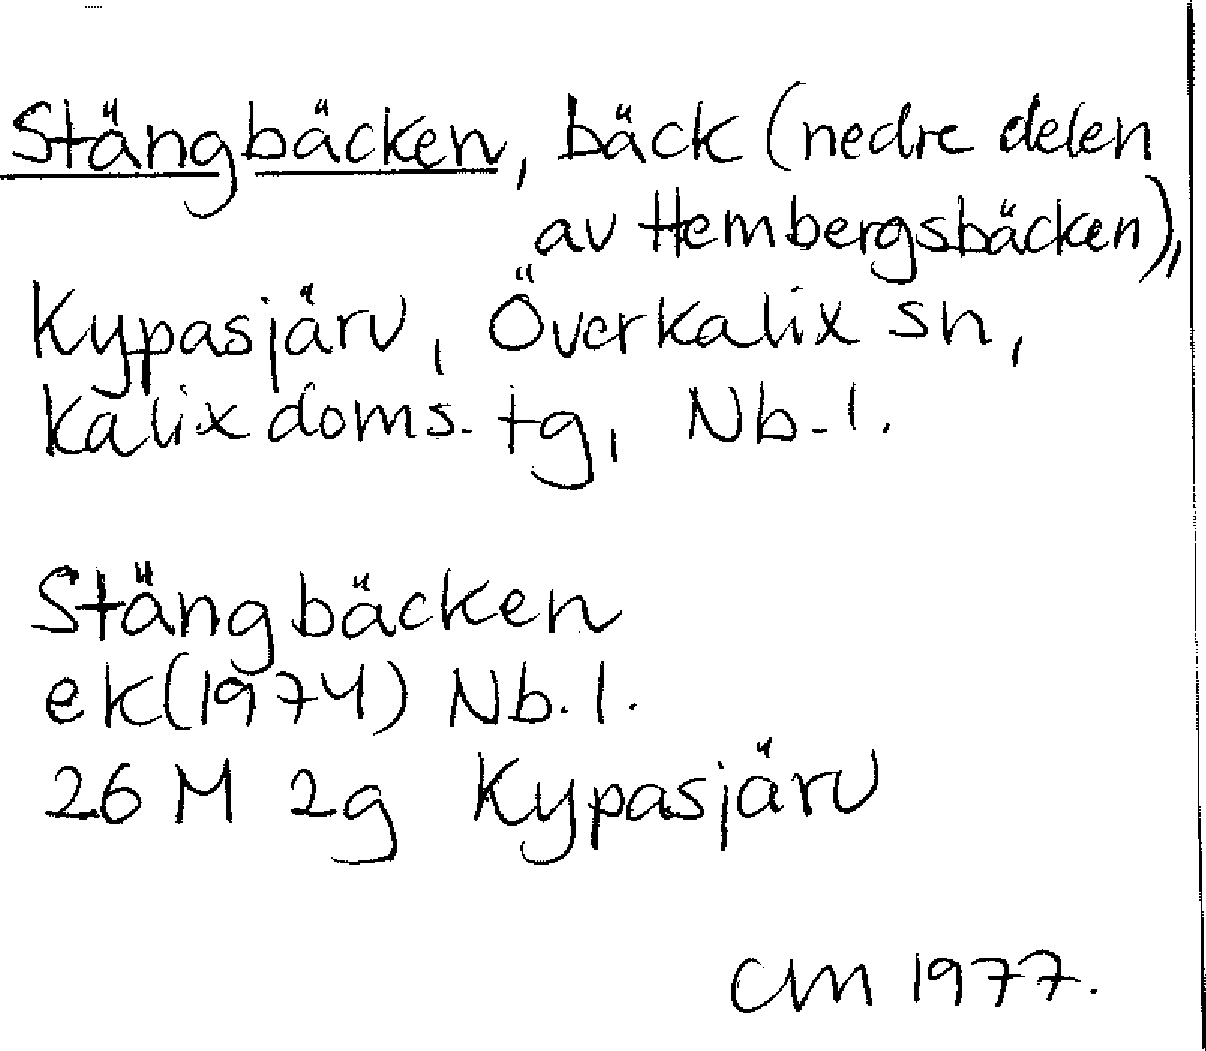 Stängbäcken, bäck (nedre delen
av Hembergsbäcken),
Kypasjärv, Överkalix sn,
Kalix doms. tg, Nb. l.
Stängbäcken
ek(1974) Nb. l.
26 M 2g Kypasjärv
CM 1977.